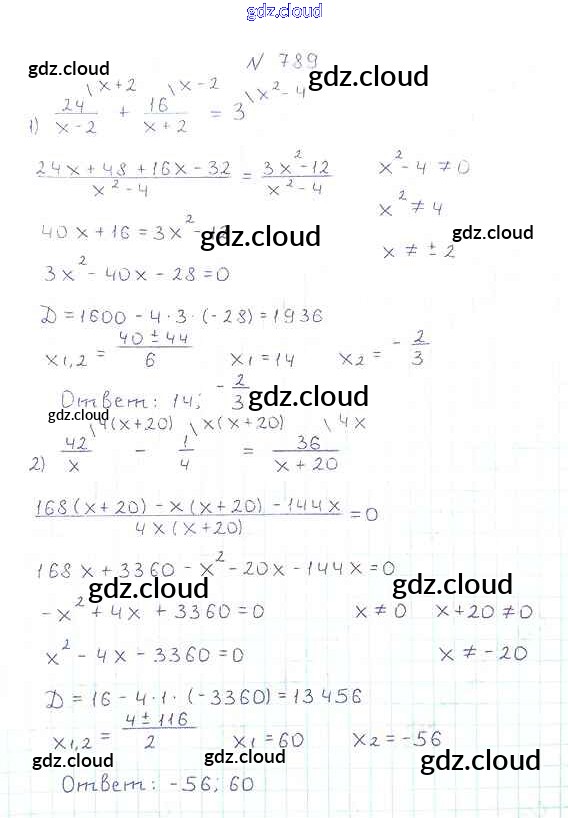 gdz.cloud
N 789
gdz.cloud gdz.cloud
1) 24/(x-2) \x+2 + 16/(x+2) \x-2 = 3 \x²-4
gdz.cloud gdz.cloud
(24x+48+16x-32)/(x²-4) = (3x²-12)/(x²-4) x²-4≠0
x²≠4
40x+16=3x²-12 gdz.cloud gdz.cloud
x≠±2
3x²-40x-28=0
D=1600-4·3·(-28)=1936
x1,2=(40±44)/6 x1=14 x2=-2/3
Ответ: 14; -2/3 gdz.cloud
gdz.cloud
2) 42/x \4(x+20) - 1/4 \x(x+20) = 36/(x+20) \4x
(168(x+20)-x(x+20)-144x)/(4x(x+20))=0
168x+3360-x²-20x-144x=0
gdz.cloud gdz.cloud
-x²+4x+3360=0 x≠0 x+20≠0
x²-4x-3360=0 x≠-20
D=16-4·1·(-3360)=13456
x1,2=(4±116)/2 x1=60 x2=-56
gdz.cloud gdz.cloud gdz.cloud
Ответ: -56; 60